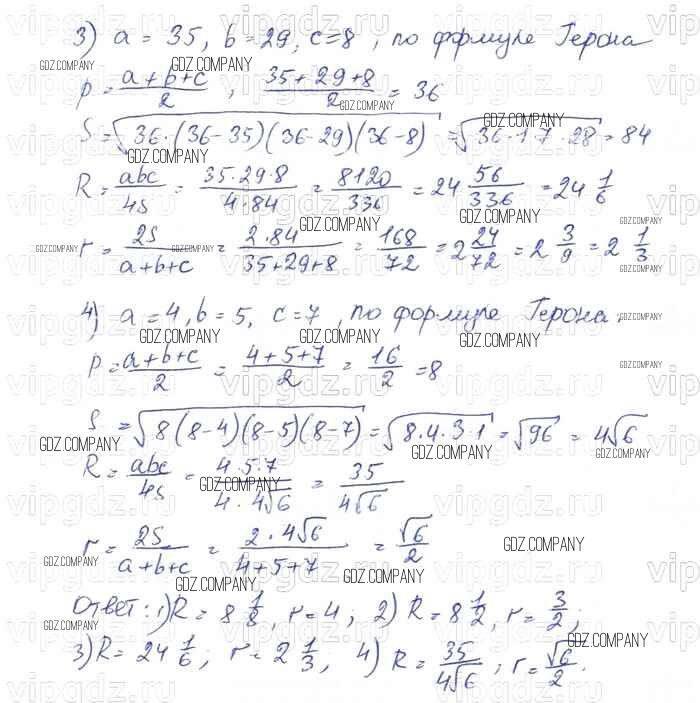 3) a = 35, b = 29, c = 8, по формуле Герона
p = (a + b + c)/2 , (35 + 29 + 8)/2 = 36
S = √(36·(36-35)(36-29)(36-8)) = √(36·1·7·28) = 84
R = abc/4S = 35·29·8/4·84 = 8120/336 = 24 56/336 = 24 1/6
r = 2S/(a+b+c) = 2·84/(35+29+8) = 168/72 = 2 24/72 = 2 3/9 = 2 1/3
4) a = 4, b = 5, c = 7, по формуле Герона.
p = (a+b+c)/2 = (4+5+7)/2 = 16/2 = 8
S = √(8(8-4)(8-5)(8-7)) = √(8·4·3·1) = √96 = 4√6
R = abc/4S = 4·5·7/4·4√6 = 35/4√6
r = 2S/(a+b+c) = 2·4√6/(4+5+7) = √6/2
Ответ: 1) R = 8 1/8, r = 4; 2) R = 8 1/2, r = 3/2;
3) R = 24 1/6; r = 2 1/3, 4) R = 35/4√6; r = √6/2.
GDZ.COMPANY
vipgdz.ru